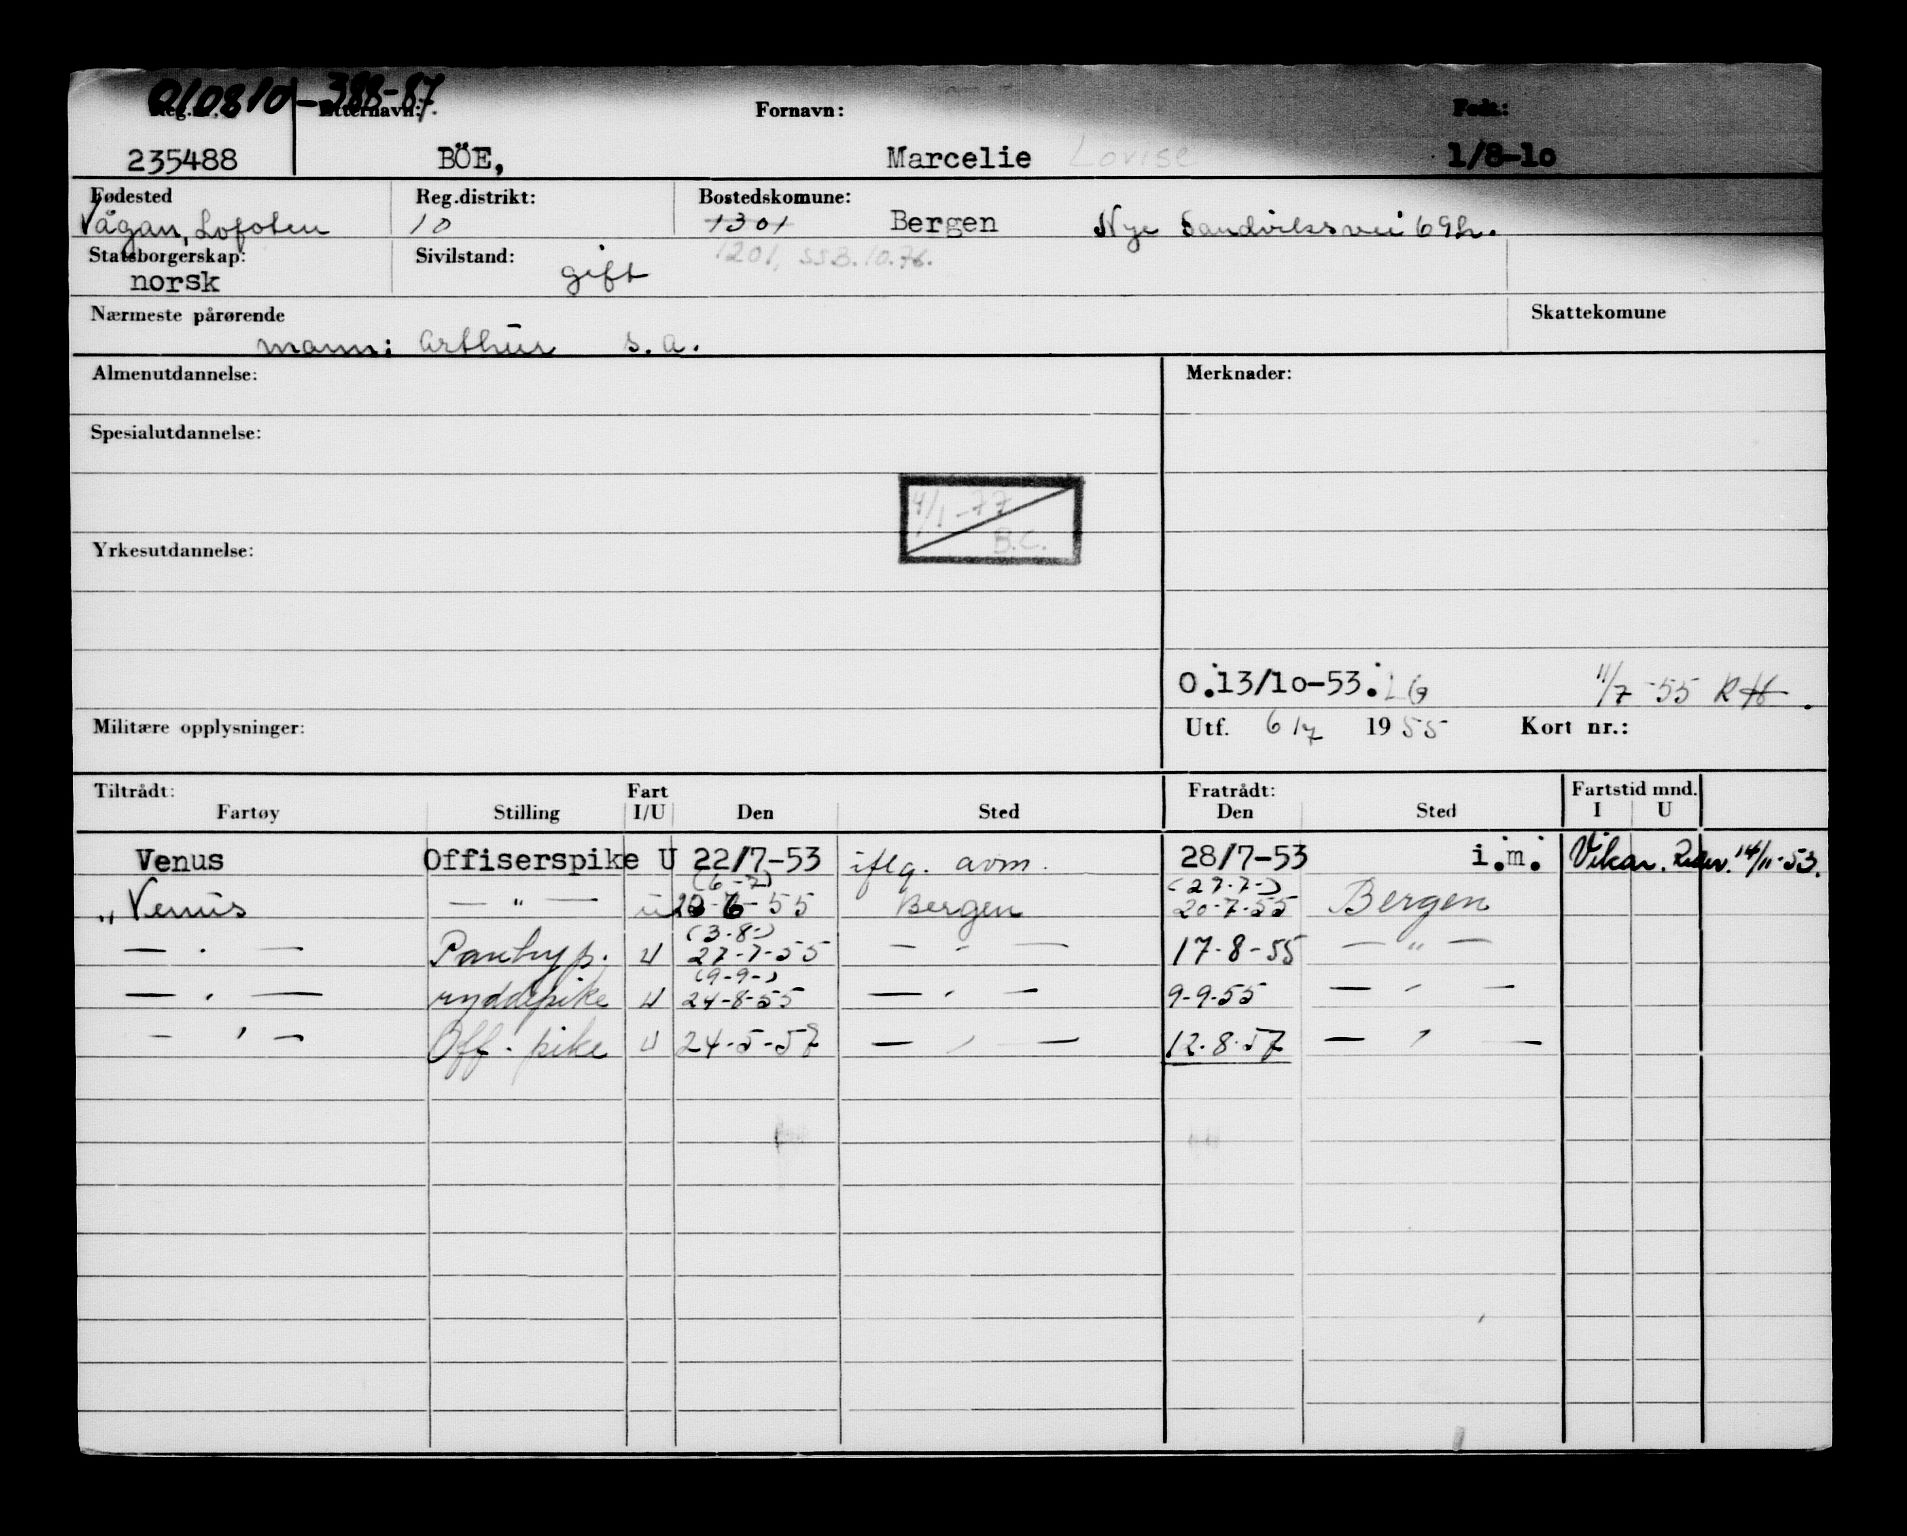 010810-388-87
Etternavn: Fornavn: Født.:
235488 BÖE, Marcelie Lovise 1/8-1o
Fødested Reg.distrikt: Bostedskomune:
Vågan, Lofoten 10 1301 Bergen Nye Sandviksvei 69h.
Statsborgerskap: Sivilstand: 1201, SSB.10.76.
norsk gift
Nærmeste pårørende Skattekomune
mann: Arthur s.a.
Almenutdannelse: Merknader:
Spesialutdannelse:
4/1-77
B.C.
Yrkesutdannelse:
O.13/1o-53. LG 11/7-55 RH.
Militære opplysninger: Utf. 6/7 1955 Kort nr.:
Tiltrådt: Fart Fratrådt: Fartstid mnd.
Fartøy Stilling I/U Den Sted Den Sted I U
Venus Offiserspike U 22/7-53 iflg. avm. 28/7-53 i.m. Vikar. 14/11-53.
(6-7) (27.7-)
" Venus — " — U 6-55 Bergen 20-7-55 Bergen
(3-8-)
— " — Pantryp. U 27-7-55 — " — 17-8-55 — " —
(9-9-)
— " — ryddepike U 24-8-55 — " — 9-9-55 — " —
— " — Off. pike U 24-5-57 — " — 12.8.57 — " —